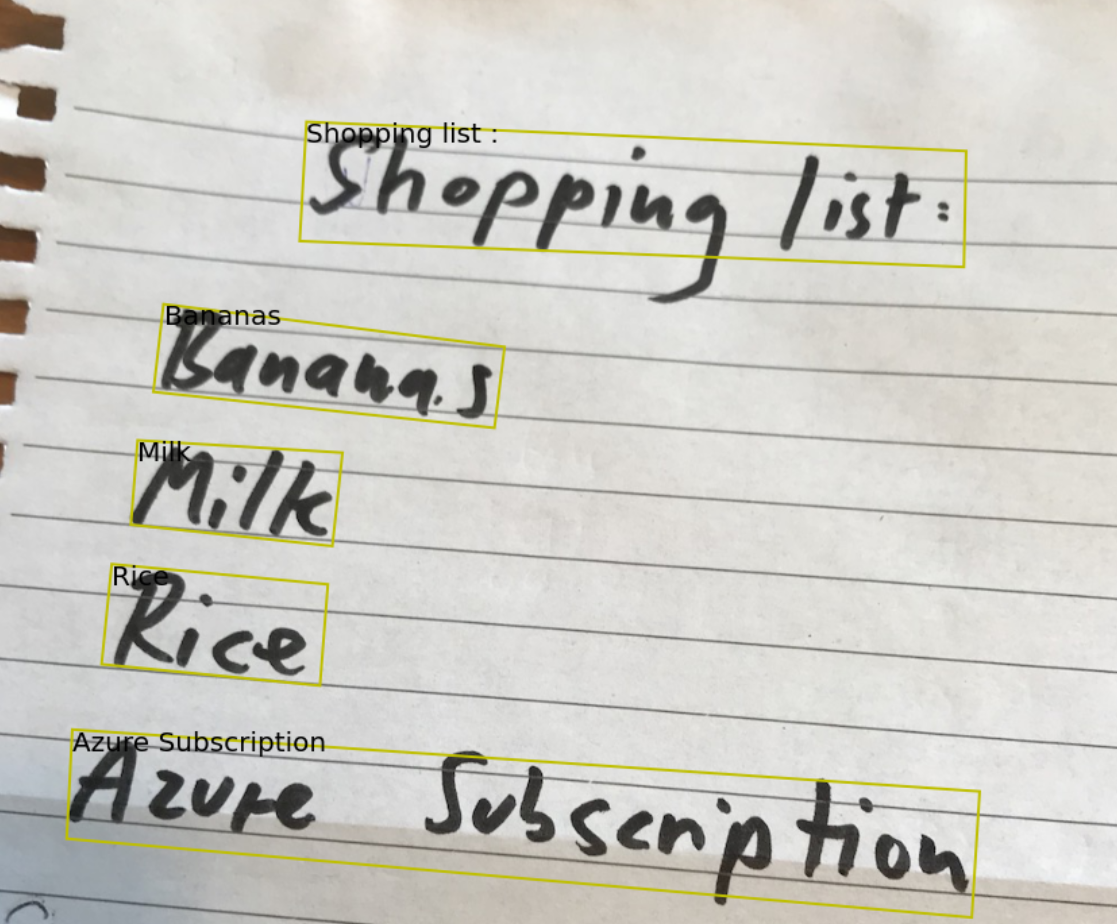 Shopping list :
Shopping list:
Bananas
Banana.s
Milk
Milk
Rice
Rice
Azure Subscription
Azure Subscription